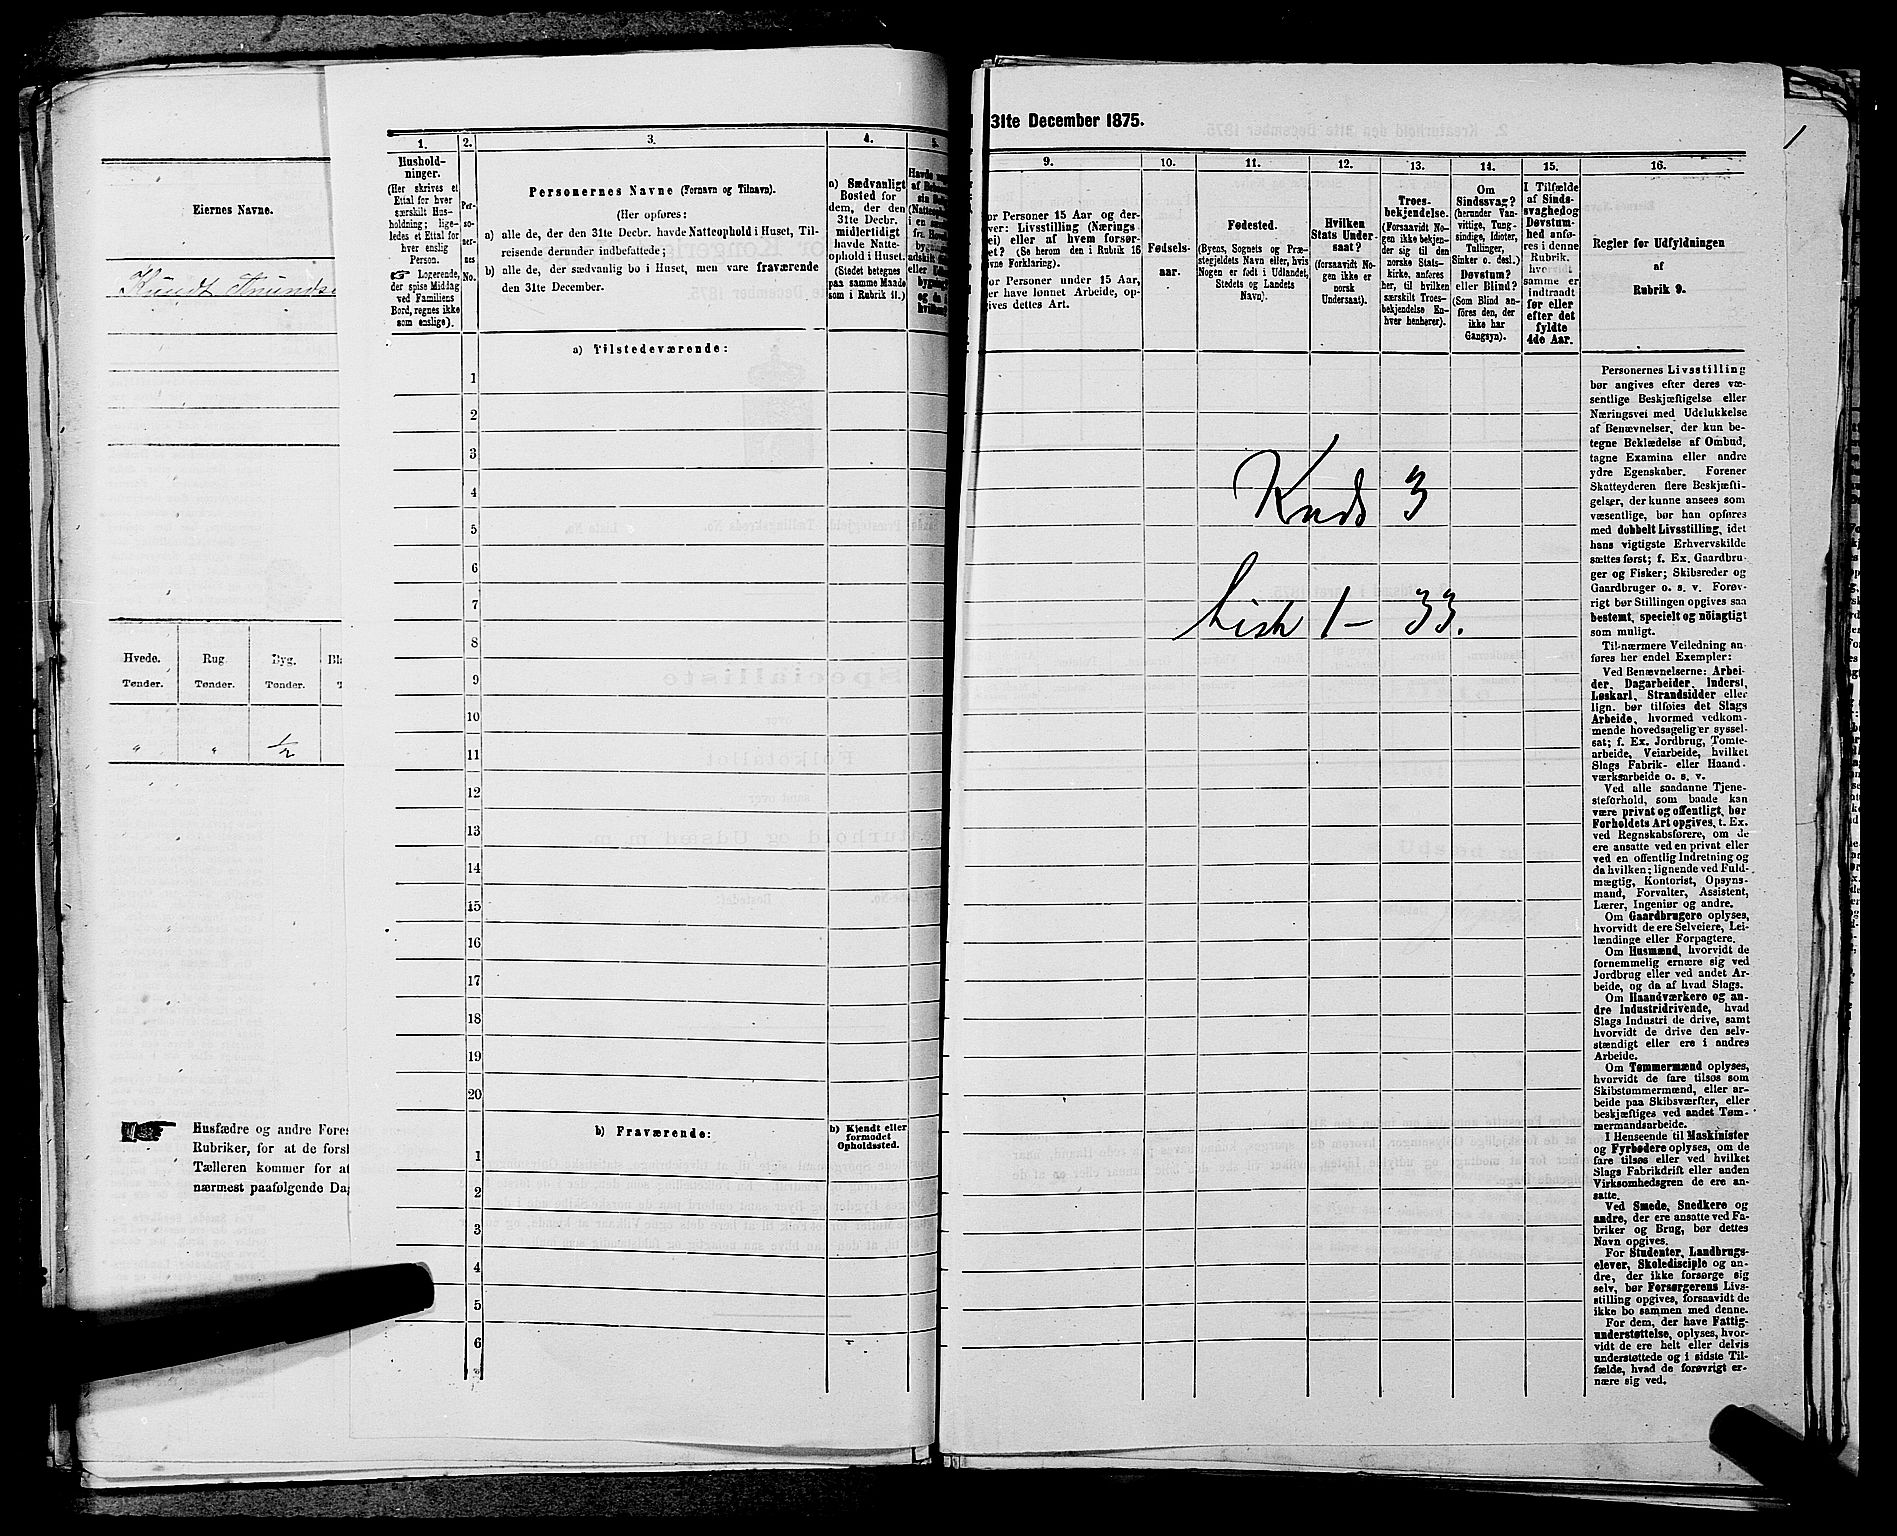 Eiernes Navne.
Hvede.
Tønder.
Rug.
Tønder.
Byg.
Tønder.
"
"
1/2
Husfædre og andre Fores
Rubriker, for at de forsk
Tælleren kommer for at
nærmest paafølgende Dag
1.
Hushold-
ninger.
(Her skrives et
Ettal for hver
særskilt Hus-
holdning; lige-
ledes et Ettal for
hver enslig
Person.
☞ Logerende,
der spise Middag
ved Familiens
Bord, regnes ikke
som enslige).
2.
Per-
so-
ner-
nes
No.
3.
Personernes Navne (Fornavn og Tilnavn).
(Her opføres:
a) alle de, der den 31te Decbr. havde Natteophold i Huset, Til-
reisende derunder indbefattede;
b) alle de, der sædvanlig bo i Huset, men vare fraværende
den 31te December.
4.
a) Sædvanligt
Bosted for
dem, der den
31te Decbr.
midlertidigt
havde Natte-
ophold i Huset.
(Stedet betegnes
paa samme Maade
som i Rubrik 11.)
5.
a) Tilstedeværende:
1
2
3
4
5
6
7
8
9
10
11
12
13
14
15
16
17
18
19
20
b) Fraværende:
b) Kjendt eller
formodet
Opholdssted.
1
2
3
4
5
6
31te December 1875.
1
9.
or Personer 15 Aar og der-
ver: Livsstilling (Nærings
ei) eller af hvem forsør-
et? (Se herom den i Rubrik 16
vne Forklaring).
or Personer under 15 Aar,
er have lønnet Arbeide, op-
gives dettes Art.
10.
Fødsels-
aar.
11.
Fødested.
(Byens, Sognets og Præ-
stegjeldets Navn eller, hvis
Nogen er født i Udlandet,
Stedets og Landets
Navn).
12.
Hvilken
Stats Under-
saat?
(forsaavidt No-
gen ikke er
norsk
Undersaat).
13.
Troes-
bekjendelse.
(Forsaavidt No-
gen ikke bekjen-
der sig til den
norske Stats-
kirke, anføres
her, til hvilken
særskilt Troes-
bekjendelse En-
hver henhører).
14.
Om
Sindssvag?
(herunder Van-
vittige, Tung-
sindige, Idioter,
Tullinger,
Sinker o. desl.)
Døvstum?
eller Blind?
(Som Blind an-
føres den, der
ikke har
Gangsyn).
15.
I Tilfælde
af Sinds-
svaghed og
Døvstum-
hed anfø-
res i denne
Rubrik,
hvorvidt
samme er
indtraadt
før eller
efter det
fyldte
4de Aar.
16.
Regler før Udfyldningen
af
Rubrik 9.
Kreds 3
Liste 1 - 33.
Personernes Livsstilling
bør angives efter deres væ-
sentlige Beskjæftigelse eller
Næringsvei med Udelukkelse
af Benævnelser, der kun be-
tegne Beklædelse af Ombud,
tagne Examina eller andre
ydre Egenskaber. Forener
Skatteyderen flere Beskjæfti-
gelser, der kunne ansees som
væsentlige, bør han opføres
med dobbelt Livsstilling, idet
hans vigtigste Erhvervskilde
sættes først; f. Ex. Gaardbru-
ger og Fisker; Skibsreder og
Gaardbruger o. s. v. Forøv-
rigt bør Stillingen opgives saa
bestemt, specielt og nöiagtigt
som muligt.
Til nærmere Veiledning an-
føres her endel Exempler:
Ved Benævnelserne: Arbei-
der, Dagarbeider, Inderst,
Løskarl, Strandsidder eller
lign. bør tilføies det Slags
Arbeide, hvormed vedkom-
mende hovedsagelig er syssel-
sat; f. Ex. Jordbrug, Tomte-
arbeide, Veiarbeide, hvilket
Slags Fabrik- eller Haand-
værksarbeide o. s. v.
Ved alle saadanne Tjene-
steforhold, som baade kan
være privat og offentligt, bør
Forholdets Art opgives, t. Ex.
ved Regnskabsførere, om de
ere ansatte ved en privat eller
ved en offentlig Indretning og
da hvilken; lignende ved Fuld-
mægtig, Kontorist, Opsyns-
mand, Forvalter, Assistent,
Lærer, Ingeniør og andre.
Om Gaardbrugere oplyses,
hvorvidt de ere Selveiere, Lei-
lændinge eller Forpagtere.
Om Husmænd, hvorvidt de
fornemmelig ernære sig ved
Jordbrug eller ved andet Ar-
beide, og da af hvad Slags.
Om Haandværkere og an-
dre Industridrivende, hvad
Slags Industri de drive, samt
hvorvidt de drive den selv-
stændigt eller ere i andres
Arbeide.
Om Tømmermænd oplyses,
hvorvidt de fare tilsøs som
Skibstømmermænd, eller ar-
beide paa Skibsværfter, eller
beskjæftiges ved andet Tøm-
mermandsarbeide.
I Henseende til Maskinister
og Fyrbødere oplyses, om de
fare tilsøs eller ved hvilket
Slags Fabrikdrift eller anden
Virksomhedsgren de ere an-
satte.
Ved Smede, Snedkere og
andre, der ere ansatte ved Fa-
briker og Brug, bør dettes
Navn opgives.
For Studenter, Landbrugs-
elever, Skoledisciple og an-
dre, der ikke forsørge sig
selv, bør Forsørgerens Livs-
stilling opgives, forsaavidt de
ikke bo sammen med denne.
For dem, der have Fattig-
understøttelse, oplyses, hvor-
vidt de ere helt eller delvis
understøttede og i sidste Til-
fælde, hvad de forøvrigt er-
nære sig ved.